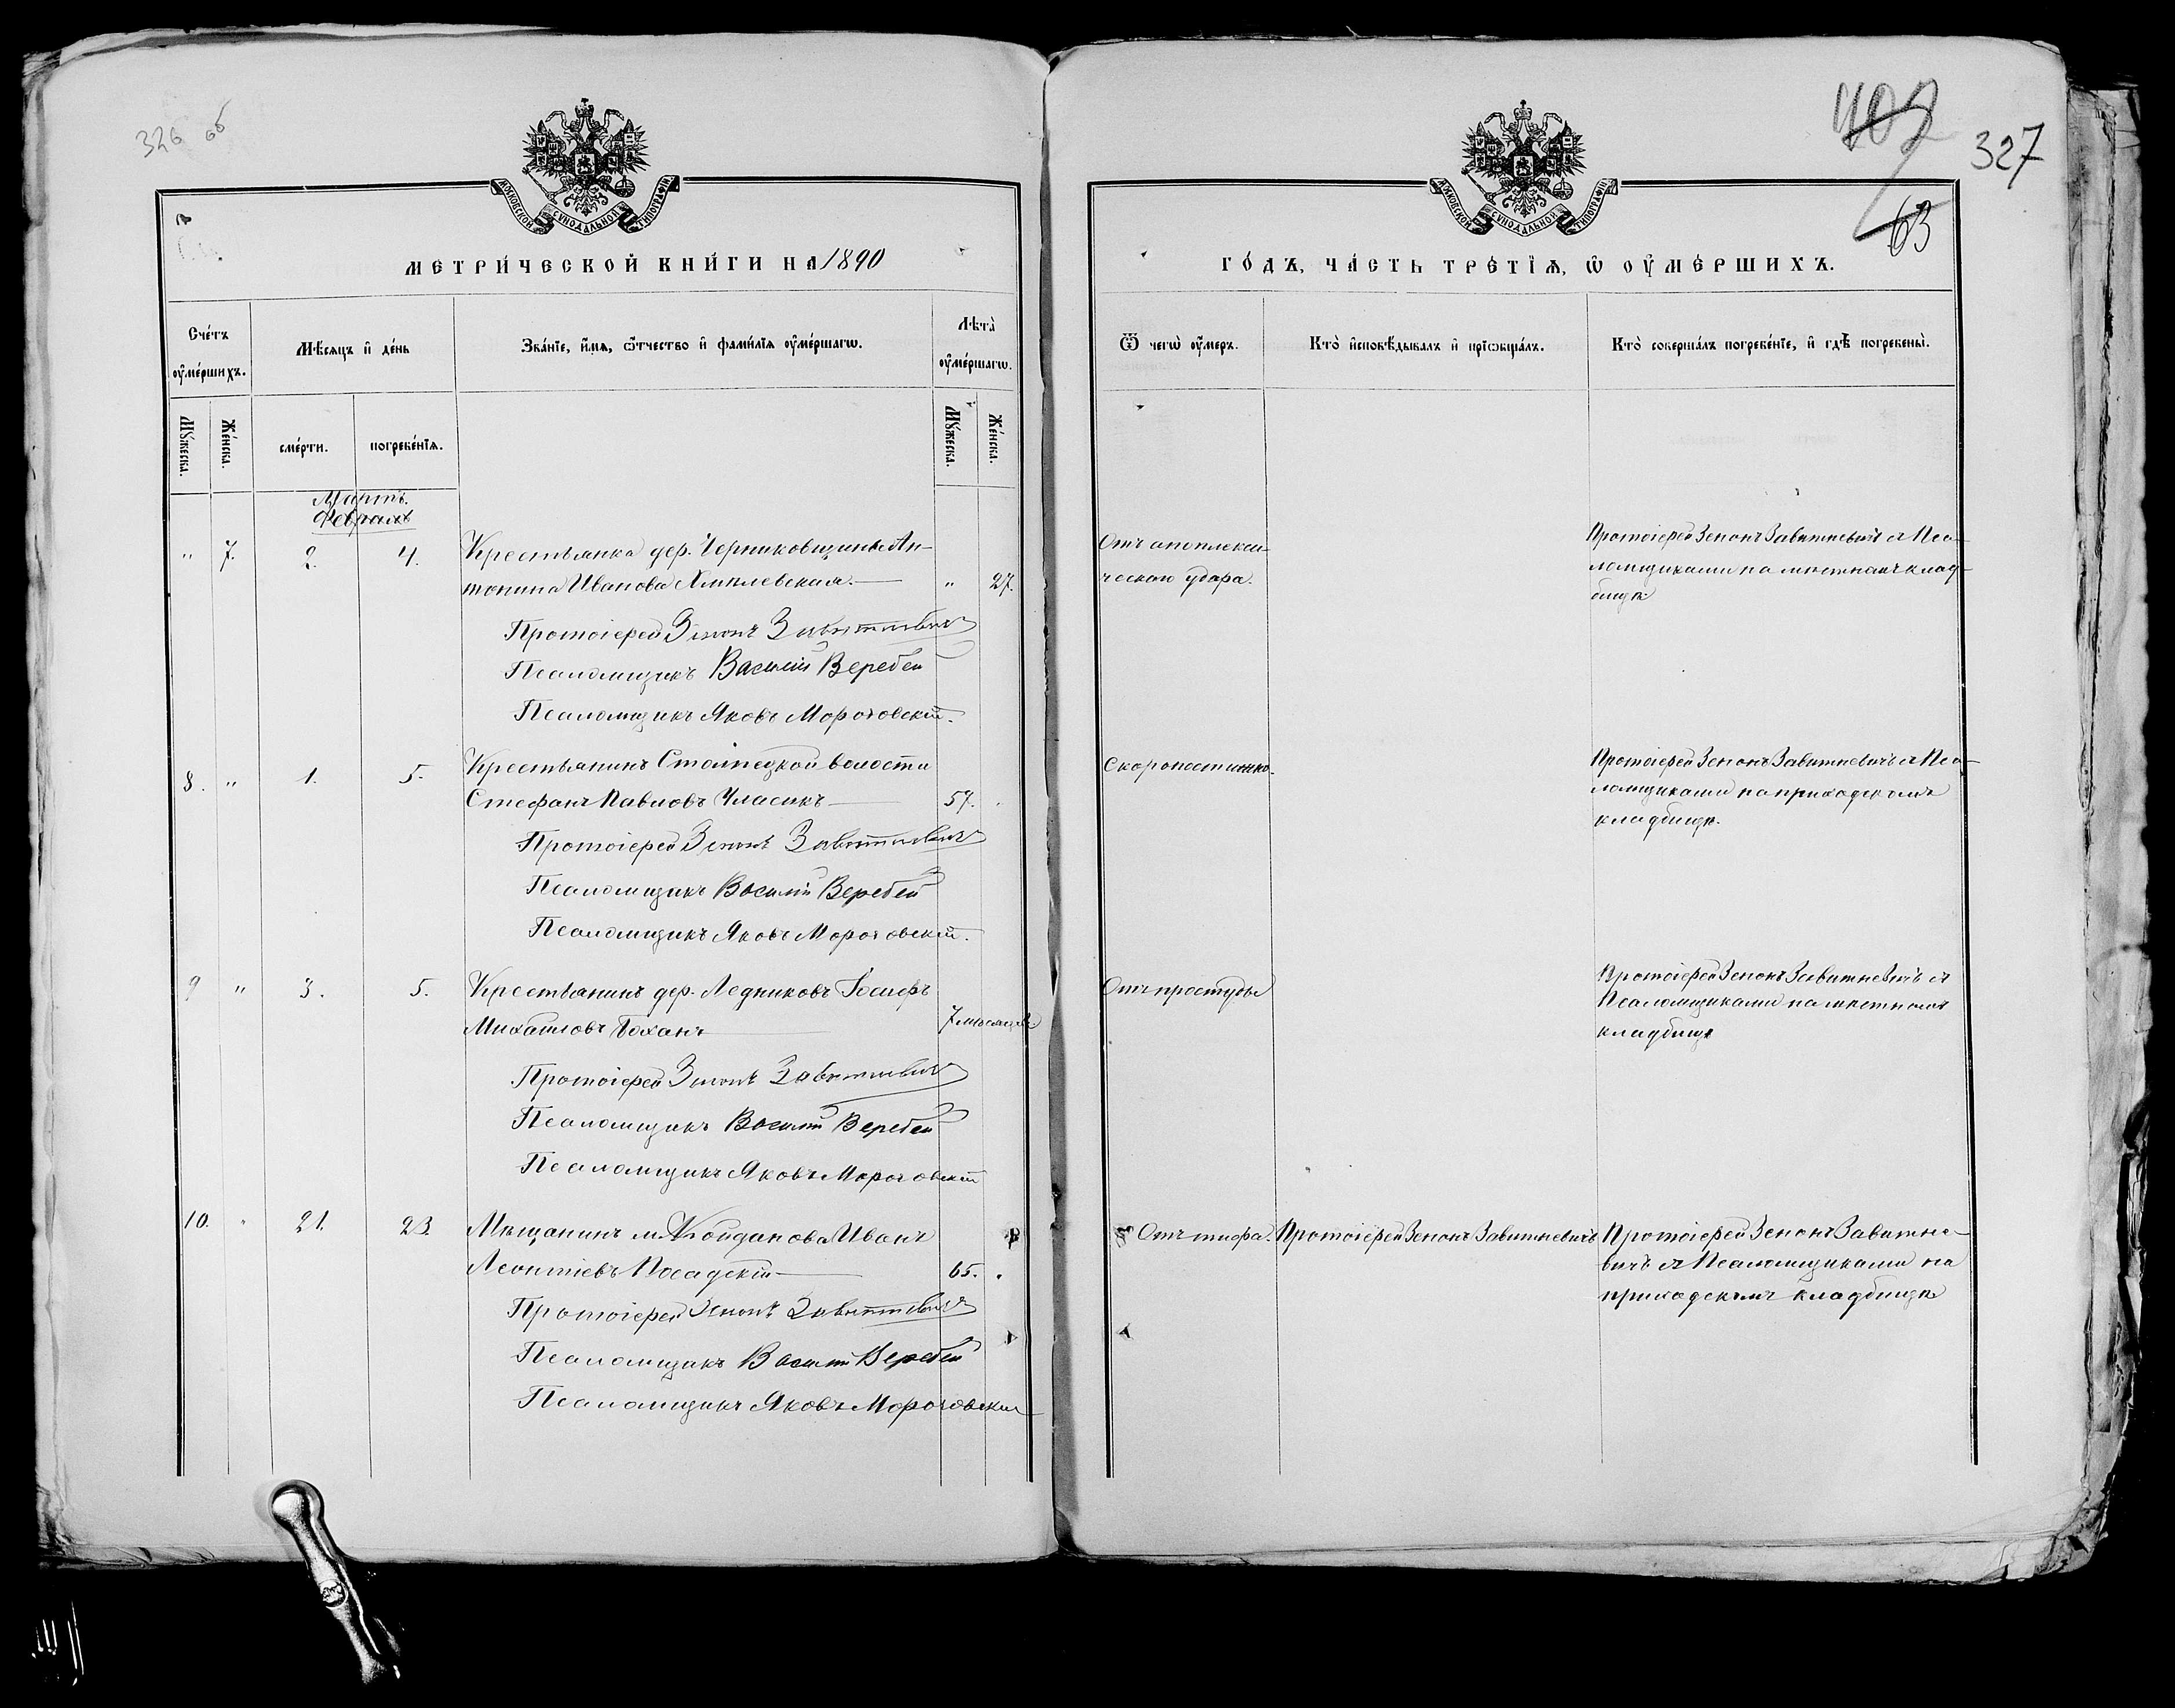 326 об
МОСКОВСКОЙ СУНОДАЛЬНОЙ ТИПОГРАФІИ
МЕТРИ́ЧЕСКОЙ КНИ́ГИ НА 1890
Сче́тъ оу҆ме́ршихъ.
Мѣ́сяцъ и҆ де́нь
Зва́нїе, и҆́мя, ѻ҆́тчество и҆ фами́лїя оу҆ме́ршагѡ.
Лѣта̀ оу҆ме́ршагѡ.
Мꙋ́жеска.
Же́нска.
сме́рти.
погребе́нїѧ.
Мꙋ́жеска.
Же́нска.
Мартъ.
Февраль
" 7. 2. 4. Крестьянка дер. Черниковщины Ан-
тонина Иванова Хмылевская. — " 27.
Протоіерей Зенонъ Завитневичъ
Псаломщикъ Василій Веребей
Псаломщикъ Яковъ Мороговскій.
8. " 1. 5. Крестьянинъ Столпецкой волости
Стефанъ Павловъ Уласикъ — 57.
Протоіерей Зенонъ Завитневичъ
Псаломщикъ Василій Веребей
Псаломщикъ Яковъ Мороговскій.
9 " 3. 5. Крестьянинъ дер. Ледниковъ Іосифъ
Михайловъ Боханъ — 7 мѣсяцевъ
Протоіерей Зенонъ Завитневичъ
Псаломщикъ Василій Веребей
Псаломщикъ Яковъ Мороговскій
10. " 21. 23. Мѣщанинъ м. Койданова Иванъ
Леонтіевъ Посадскій — 65. "
Протоіерей Зенонъ Завитневичъ
Псаломщикъ Василій Веребей
Псаломщикъ Яковъ Мороговскій
327
63
МОСКОВСКОЙ СУНОДАЛЬНОЙ ТИПОГРАФІИ
ГО́ДЪ, ЧА́СТЬ ТРЕ́ТЇѦ, Ѡ҆ ОУ҆МЕ́РШИХЪ.
Ѿ чегѡ̀ оу҆́меръ.
Кто̀ и҆сповѣ́дывалъ и҆ прїѡбща́лъ.
Кто̀ соверша́лъ погребе́нїе, и҆ гдѣ̀ погребены̀.
Отъ апоплекси-
ческаго удара.
Протоіерей Зенонъ Завитневичъ съ Пса-
ломщиками на мѣстномъ клад-
бищѣ
Скоропостижно.
Протоіерей Зенонъ Завитневичъ съ Пса-
ломщиками на приходскомъ
кладбищѣ.
Отъ простуды
Протоіерей Зенонъ Завитневичъ съ
Псаломщиками на мѣстномъ
кладбищѣ
Отъ тифа. Протоіерей Зенонъ Завитневичъ Протоіерей Зенонъ Завитне-
вичъ съ Псаломщиками на
приходскомъ кладбищѣ